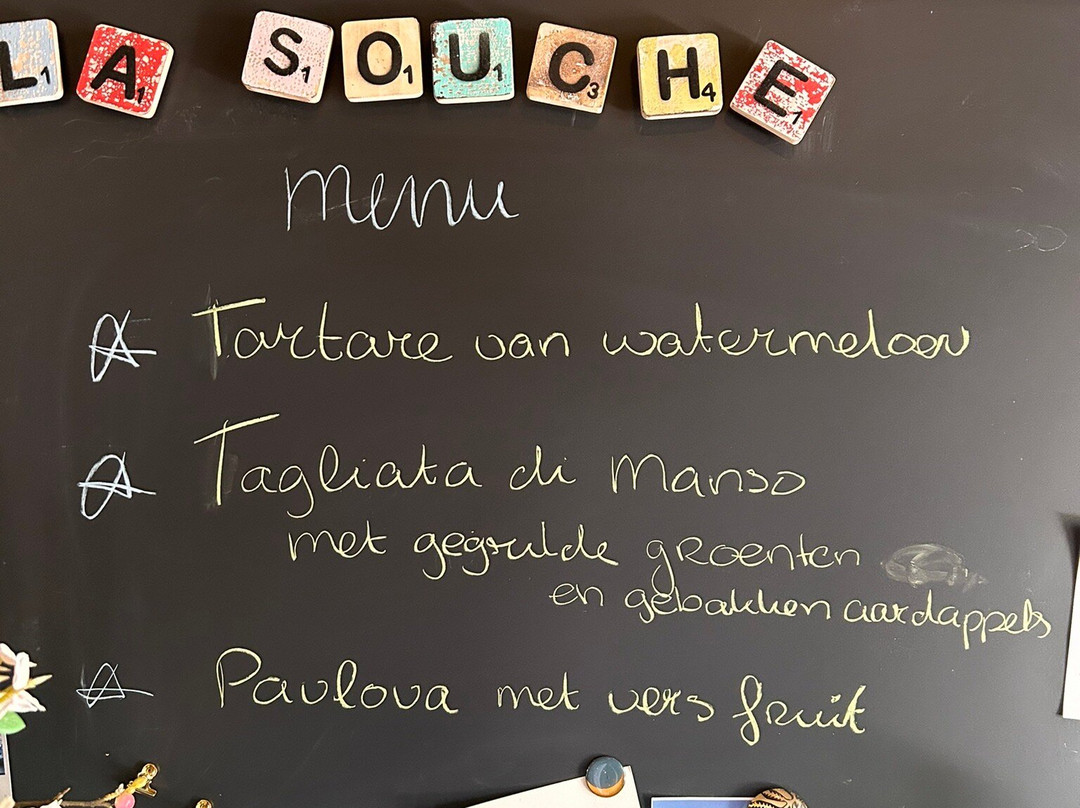 LA SOUCHE
menu
Tartare van watermeloen
Tagliata di Manso
met gegrilde groenten
en gebakken aardappels
Pavlova met vers fruit